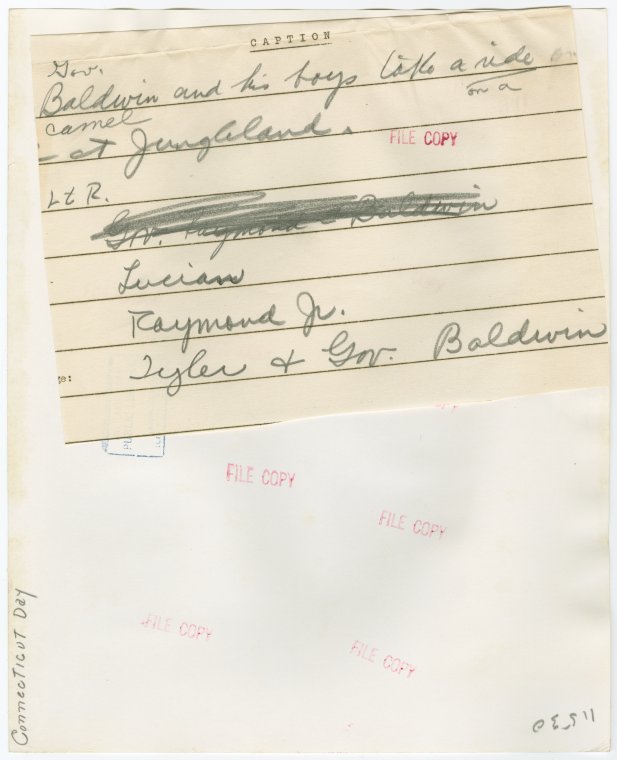 CAPTION
Gov.
Baldwin and his boys take a ride on
on a
camel
- at Jungleland.
FILE COPY
L t R.
Gov. Raymond Baldwin
Lucian
Raymond Jr.
Tyler & Gov. Baldwin
FILE COPY
FILE COPY
FILE COPY
FILE COPY
Connecticut Day